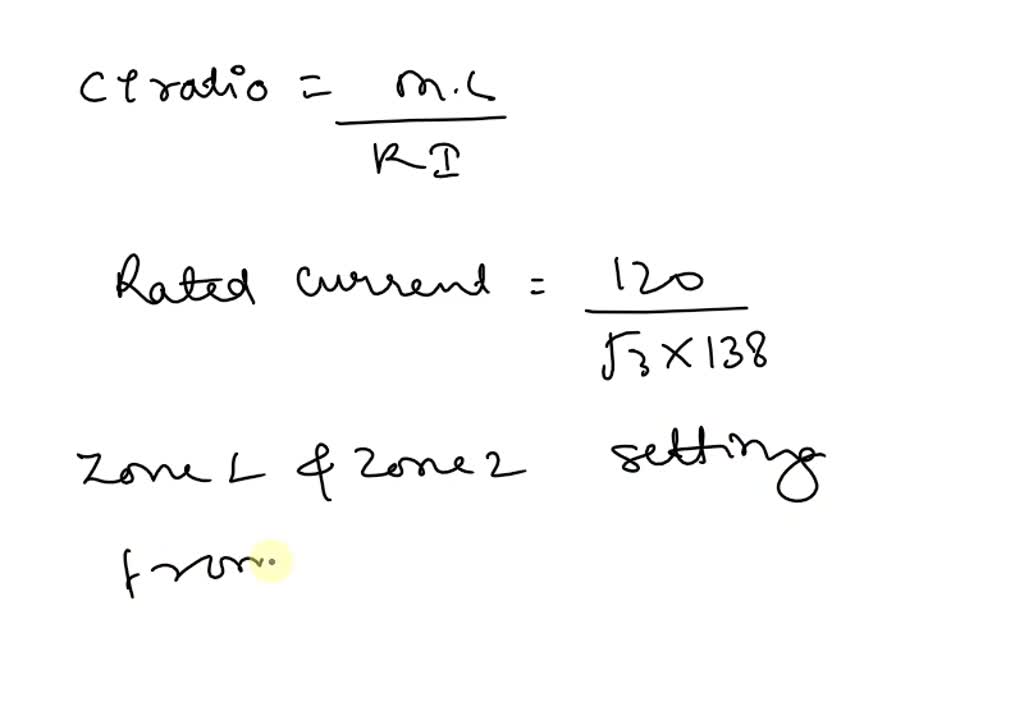 Ct ratio = m.L / RI
Rated current = 120 / √3 × 138
Zone L & Zone 2 setting
from